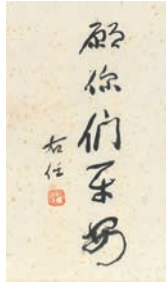 願你们平安
右任